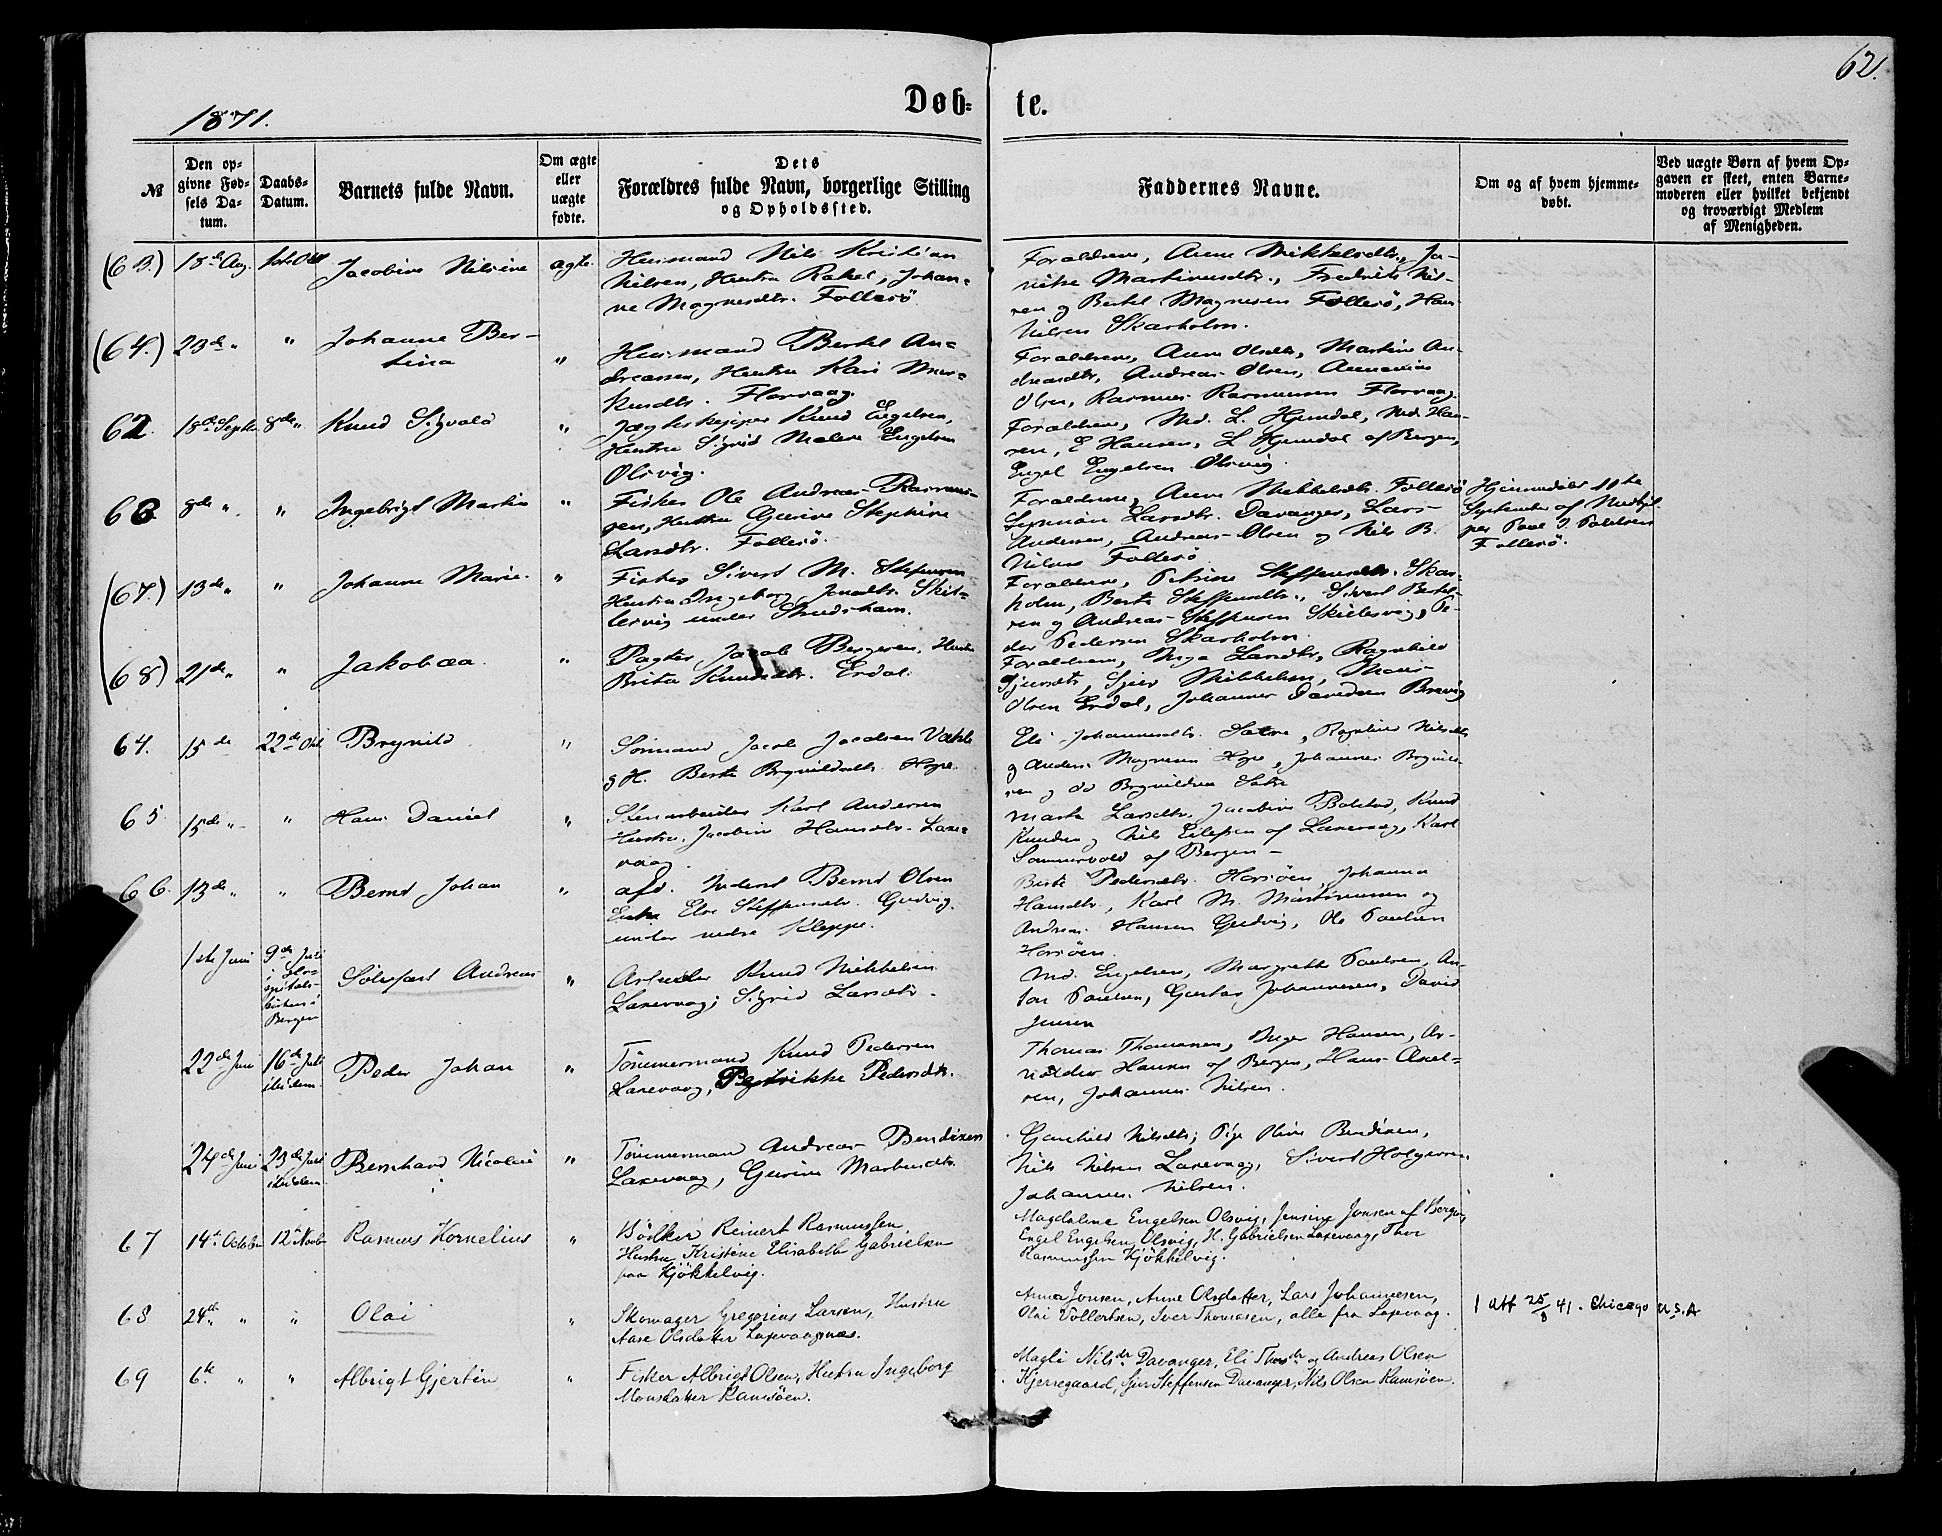 62.
1871.
Døb- te.
№
Den op-
givne Fød-
sels Da-
tum.
Daabs-
Datum.
Barnets fulde Navn.
Om ægte
eller
uægte
fødte.
Dets
Forældres fulde Navn, borgerlige Stilling
og Opholdssted.
Faddernes Navne.
Om og af hvem hjemme-
døbt.
Ved uægte Børn af hvem Op-
gaven er skeet, enten Barne-
moderen eller hvilket bekjendt
og troværdigt Medlem
af Menigheden.
(63.) 18de Aug. Jacobine Nilsine ægte.
Huusmand Nils Kristian
Nilsen, Hustru Rakel, Johan-
ne Magnesdtr. Follesø.
Forældrene, Anne Mikkelsdtr., Ja-
Martinusdtr., Fredrik Nil-
sen og Bertel Magnesen Follesø, Hans
Nilsen Skarholm.
(64.) 23de " " Johanne Ber-
tina "
Huusmand Bertel An-
dreassen, Hustru Kari Mar-
kusdtr. Florvaag.
Forældrene, Anne Olsdtr., Martine An-
dreasdtr., Andreas Olsen,
Olsen, Rasmus Rasmussen Florvaag.
62. 18de Septr. 8de " Knud Sigvald "
Jægtskipper Knud Engelsen,
Hustru Sigrid Malene Engelsen
Olsvig.
Forældrene, Md. L. Hjemdal, Md. Han-
sen, E Hansen, L Hjemdal af Bergen,
Engel Engelsen Olsvig.
63. 8de " " Ingebrigt Martin "
Fisker Ole Andreas Rasmus-
sen, Hustru Gurine Stephine
Larsdtr. Follesø.
Forældrene, Anne Mikkelsdtr. Follesø
Larsdtr. Davanger, Lars
Andersen, Andreas Olsen og Nils B.
Nilsen Follesø
Hjemmedøbt 11te
September af
Follesø.
(67.) 13de " " Johanne Marie. "
Fisker Sivert M. Stefensen
Hustru Ingeborg Skit-
lesvig under Strudshavn.
Forældrene, Petrine Steffensdtr. Skar-
holm, Berte Steffensdtr., Sivert Bertel-
sen og Andreas Steffensen Skitlesvig, Pe-
der Pedersen Skarholm.
(68) 21de " " Jakobæa. "
Pagter Jacob Bergesen, Hustru
Brita Knudsdtr. Erdal.
Forældrene, Inga Larsdtr., Ragnhild
Sjursdtr., Sjur Mikkelsen, Mons
Olsen Erdal, Johannes Davidsen Brevig
64. 15de 22de Okt Brynild "
Sømand Jacob Jacobsen
og H. Berte Brynildsdtr. Hope.
Eli Johannesdtr. Sætre, Nilsdtr.
og Anders Magnesen Hope, Johannes Brynild-
sen og Brynildsen Sætre
65. 15de " " Hans Daniel "
Stenarbeider Karl Andersen
Hustru, Jacobine Hansdtr. Laxe-
vaag.
Marte Larsdtr., Jacobine Bolstad, Knud
Knudsen og Nils Eilefsen af Laxevaag, Karl
Sommervold af Bergen -
66. 13de " " Bernt Johan "
afd. Inderst Bernt Olsen
Enke Else Steffensdtr. Gudvig
under nedre Kleppe.
Berte Pedersdtr. Horsøen, Johanna
Hansdtr., Karl M. Martinussen og
Andreas Hansen Gudvig, Ole Paulsen
Horsøen.
1ste Juni 9de Juli
i Ho-
spitals-
kirken i
Bergen
Sølefast Andreas "
Arbeider Knud Mikkelsen
Laxevaag; Sigrid Larsdtr.
Md. Engelsen, Margrethe Paulsen, An-
ton Paulsen, Gustav Johannesen, David
Jensen
22de Juni 16de Juli
ibidem Peder Johan "
Tømmermand Knud Pedersen
Laxevaag, Pedersdtr.
Thomas Thomassen, Inger Hansen, Ar-
Hansen af Bergen, Hans Axel-
sen, Johannes Nilsen.
24de Juni 23de Juli
ibidem Bernhard Nicolai "
Tømmermand Andreas Bendixen
Laxevaag, Gurine Markusdtr.
Gunhild Nilsdtr; Pige Oline Bendixen,
Nils Nilsen Laxevaag, Sivert Holgersen,
Johannes Nilsen.
67 14de October 12te Novbr Rasmus Kornelius "
Bødker Reinert Rasmussen
Hustru Kristine Elisabeth Gabrielsen
paa Kjøkkelvig.
Magdalena Engelsen Olsvig, Jensine Jonsen af Bergen,
Engel Engelsen Olsvig, H. Gabrielsen Laxevaag, Thor
Rasmussen Kjøkkelvig.
68 24de " " Olai "
Skomager Gregorius Larsen, Hustru
Aase Olsdatter Laxevaagnæs.
Anna Jonsen, Anne Olsdatter, Lars Johannesen,
Olai Vollertsen, Iver Thomassen, alle fra Laxevaag.
1 att 25/8 41. Chicago U.S.A
69 6te " " Albrigt Gjertin "
Fisker Albrigt Olsen, Hustru Ingeborg
Monsdatter Ramsøen.
Magli Nilsdr Davanger, Eli Thosdr og Andreas Olsen
Kjerregaard, Sjur Steffensen Davanger, Nils Olsen Ramsøen.